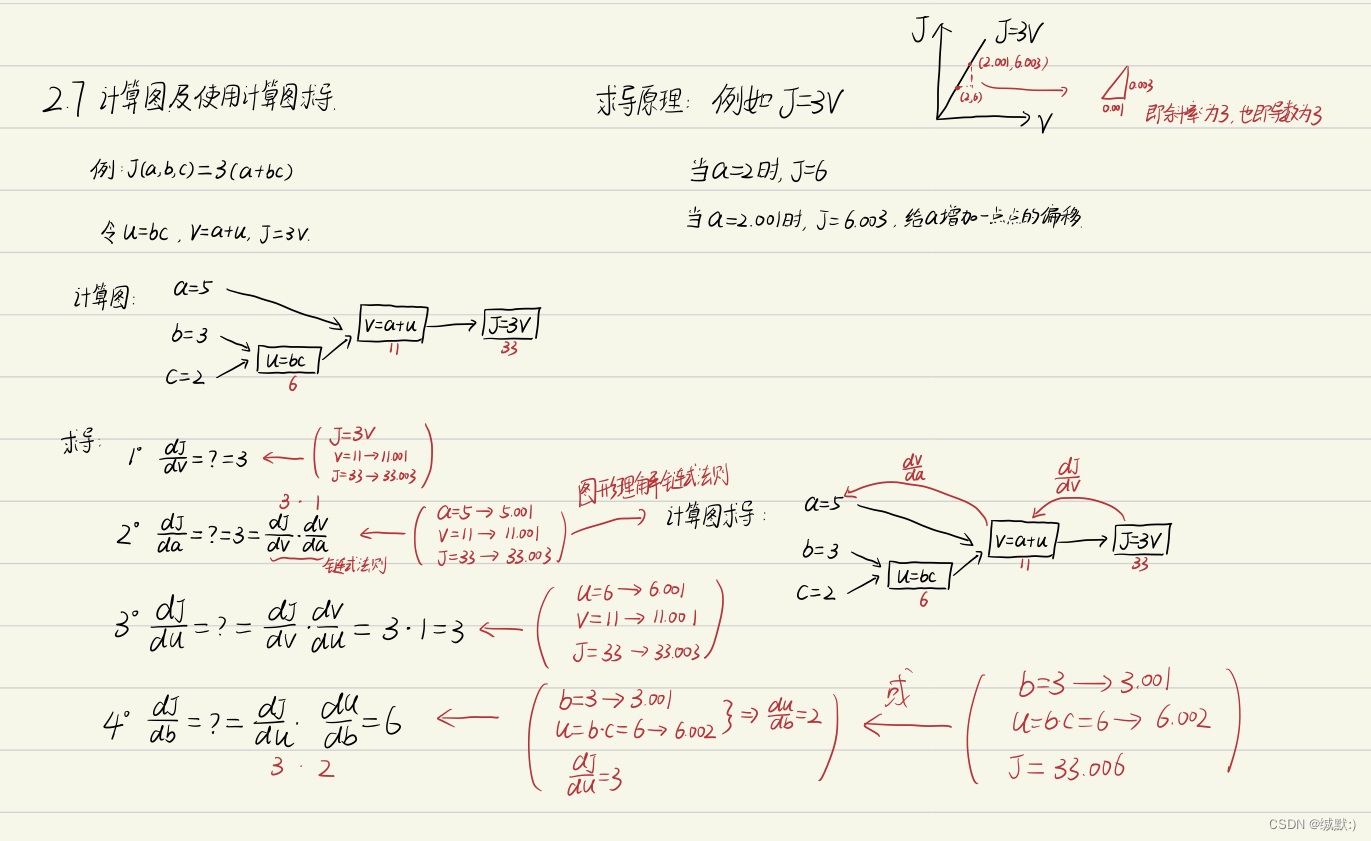 2.7 计算图及使用计算图求导.
例:J(a,b,c)=3(a+bc)
令u=bc, V=a+u, J=3V.
计算图:
a=5
b=3
c=2
u=bc
6
V=a+u
11
J=3V
33
求导原理: 例如 J=3V
J
J=3V
(2.001,6.003)
(2,6)
V
0.003
0.001
即斜率为3,也即导数为3
当a=2时, J=6
当a=2.001时, J=6.003, 给a增加一点点的偏移.
求导:
1° dJ/dv=?=3
J=3V
V=11→11.001
J=33→33.003
3 · 1
2° dJ/da=?=3=dJ/dv·dv/da
链式法则
a=5→5.001
V=11→11.001
J=33→33.003
图形理解链式法则
计算图求导:
dv/da
dJ/dv
a=5
b=3
c=2
u=bc
6
V=a+u
11
J=3V
33
3° dJ/du=?=dJ/dv·dv/du=3·1=3
u=6→6.001
V=11→11.001
J=33→33.003
4° dJ/db=?=dJ/du·du/db=6
3 · 2
b=3→3.001
u=b·c=6→6.002
⇒du/db=2
dJ/du=3
或
b=3→3.001
u=b·c=6→6.002
J=33.006
CSDN @缄默:)